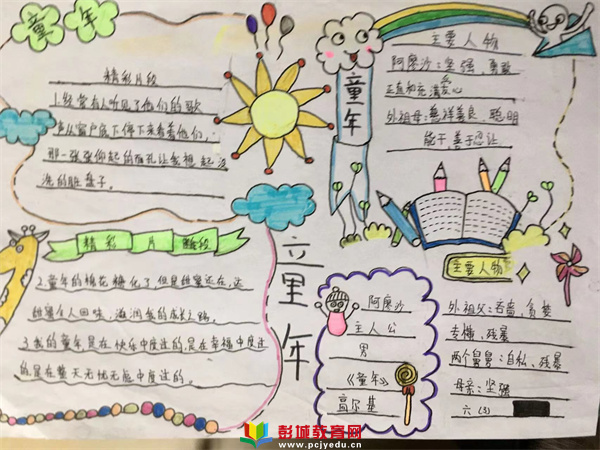 童年
精彩片段
1.经常有人听见了他们的歌
声从窗户底下停下来看着他们,
那一张张仰起的面孔让我想起没
洗的脏盘子。
精彩片段
2.童年的棉花糖化了但是甜蜜还在,这
甜蜜在人回味,滋润我的成长之路
3.我的童年是在快乐中度过的是在幸福中度过
的是在整天无忧无虑中度过的。
童年
童年
主要人物
阿廖沙:坚强,勇敢
正直和充满爱心
外祖母:慈祥善良,聪明
能干善于忍让
阿廖沙
主人公
男
《童年》
高尔基
主要人物
外祖父:吝啬,贪婪
专横,残暴
两个舅舅:自私、残暴
母亲:坚强
六(3)
彭城教育网
www.pcjyedu.cn